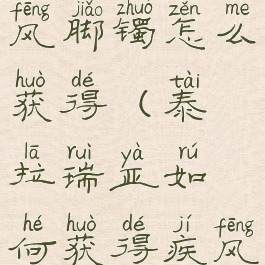 fēng jiǎo zhuó zěn me
风脚镯怎么
huò dé tài
获得(泰
lā ruì yà rú
拉瑞亚如
hé huò dé jí fēng
何获得疾风